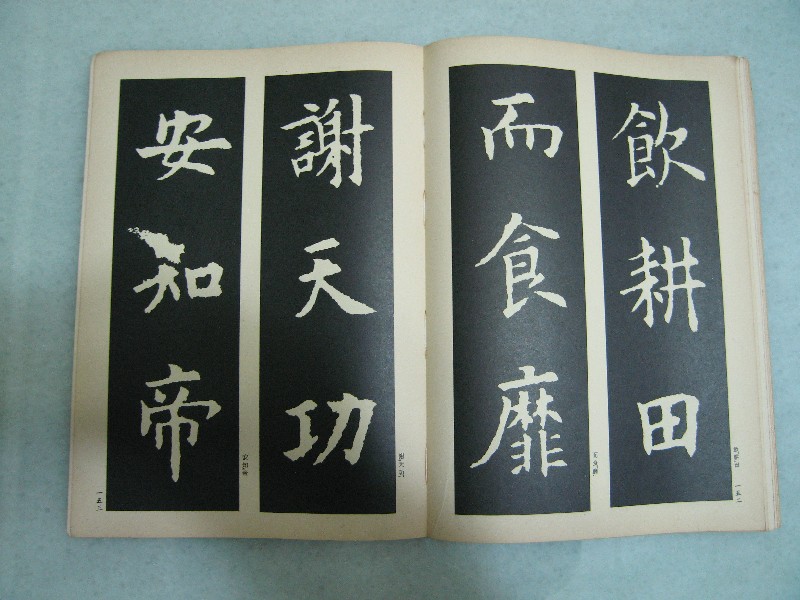 飲耕田
而食靡
謝天功
安知帝
飲耕田
一五二
而食靡
謝天功
安知帝
一五三